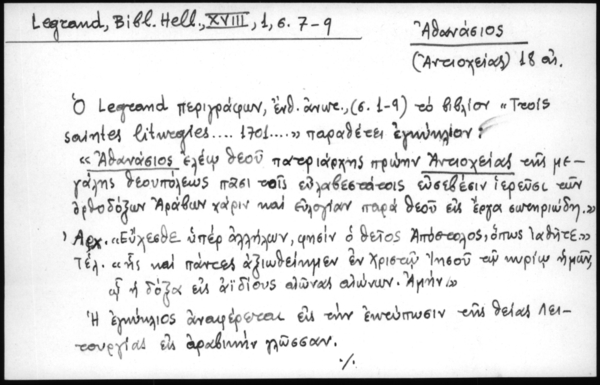 Legrand, Bibl. Hell., XVIII, 1, σ. 7-9
Ἀθανάσιος
(Ἀντιοχείας) 18 αἰ.
Ὁ Legrand περιγράφων, ἔνθ. ἀνωτ., (σ. 1-9) τὸ βιβλίον «Trois
saintes liturgies.... 1701....» παραθέτει ἐγκύκλιον:
«Ἀθανάσιος ἐλέῳ θεοῦ πατριάρχης πρώην Ἀντιοχείας τῆς με-
γάλης θεουπόλεως πᾶσι τοῖς εὐλαβεστάτοις εὐσεβέσιν ἱερεῦσι τῶν
ὀρθοδόξων Ἀράβων χάριν καὶ εὐλογίαν παρὰ θεοῦ εἰς ἔργα σωτηριώδη.»
Ἀρχ. «Εὔχεσθε ὑπὲρ ἀλλήλων, φησὶν ὁ θεῖος Ἀπόστολος, ὅπως ἰαθῆτε»
Τέλ. «ἧς καὶ πάντες ἀξιωθείημεν ἐν Χριστῷ Ἰησοῦ τῷ κυρίῳ ἡμῶν,
ᾧ ἡ δόξα εἰς ἀϊδίους αἰῶνας αἰώνων. Ἀμήν.»
Ἡ ἐγκύκλιος ἀναφέρεται εἰς τὴν ἐκτύπωσιν τῆς θείας λει-
τουργίας εἰς ἀραβικὴν γλῶσσαν.
./.